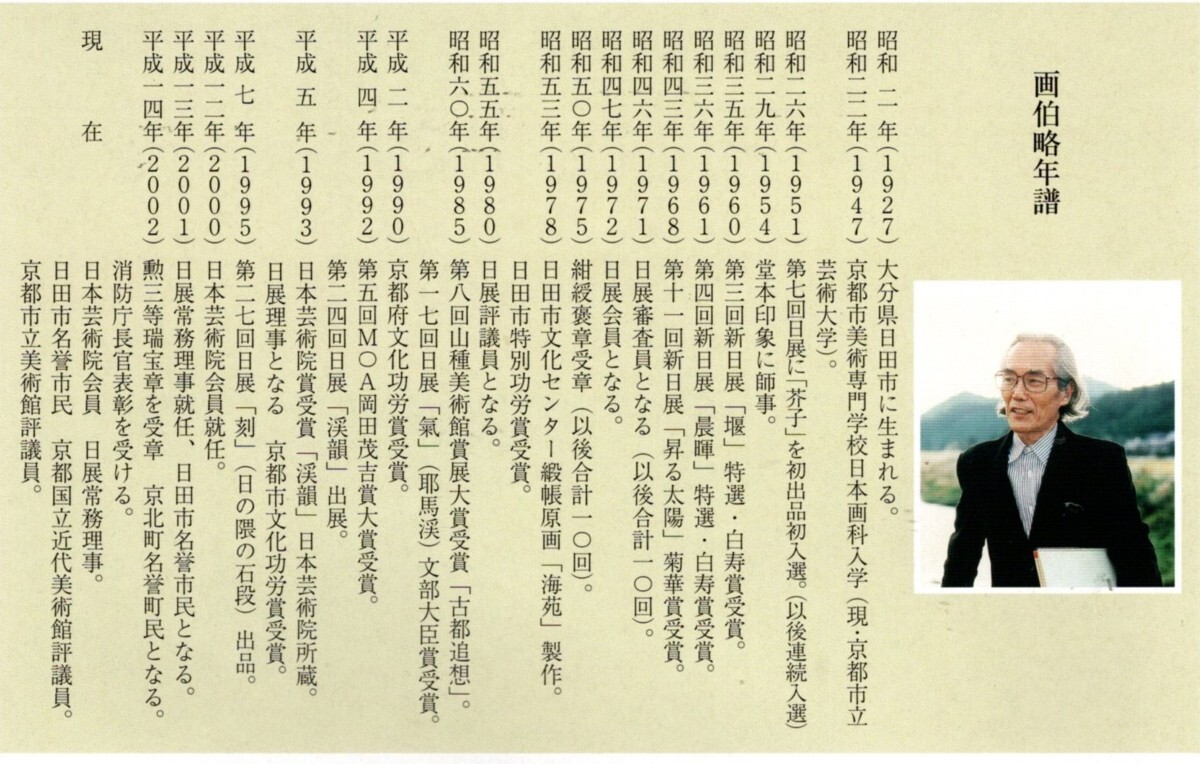 画伯略年譜
昭和 二 年(1927) 大分県日田市に生まれる。
昭和二二年(1947) 京都市美術専門学校日本画科入学(現・京都市立
芸術大学)。
昭和二六年(1951) 第七回日展に「芥子」を初出品初入選。(以後連続入選)
昭和二九年(1954) 堂本印象に師事。
昭和三五年(1960) 第三回新日展「堰」特選・白寿賞受賞。
昭和三六年(1961) 第四回新日展「晨暉」特選・白寿賞受賞。
昭和四三年(1968) 第十一回新日展「昇る太陽」菊華賞受賞。
昭和四六年(1971) 日展審査員となる(以後合計一〇回)。
昭和四七年(1972) 日展会員となる。
昭和五〇年(1975) 紺綬褒章受章(以後合計一〇回)。
昭和五三年(1978) 日田市文化センター緞帳原画「海苑」製作。
日田市特別功労賞受賞。
昭和五五年(1980) 日展評議員となる。
昭和六〇年(1985) 第八回山種美術館賞展大賞受賞「古都追想」。
第一七回日展「氣」(耶馬渓)文部大臣賞受賞。
平成 二 年(1990) 京都府文化功労賞受賞。
平成 四 年(1992) 第五回MOA岡田茂吉賞大賞受賞。
第二四回日展「渓韻」出展。
平成 五 年(1993) 日本芸術院賞受賞「渓韻」日本芸術院所蔵。
日展理事となる 京都市文化功労賞受賞。
平成 七 年(1995) 第二七回日展「刻」(日の隈の石段)出品。
平成一二年(2000) 日本芸術院会員就任。
平成一三年(2001) 日展常務理事就任、日田市名誉市民となる。
平成一四年(2002) 勲三等瑞宝章を受章 京北町名誉町民となる。
消防庁長官表彰を受ける。
現 在 日本芸術院会員 日展常務理事。
日田市名誉市民 京都国立近代美術館評議員。
京都市立美術館評議員。